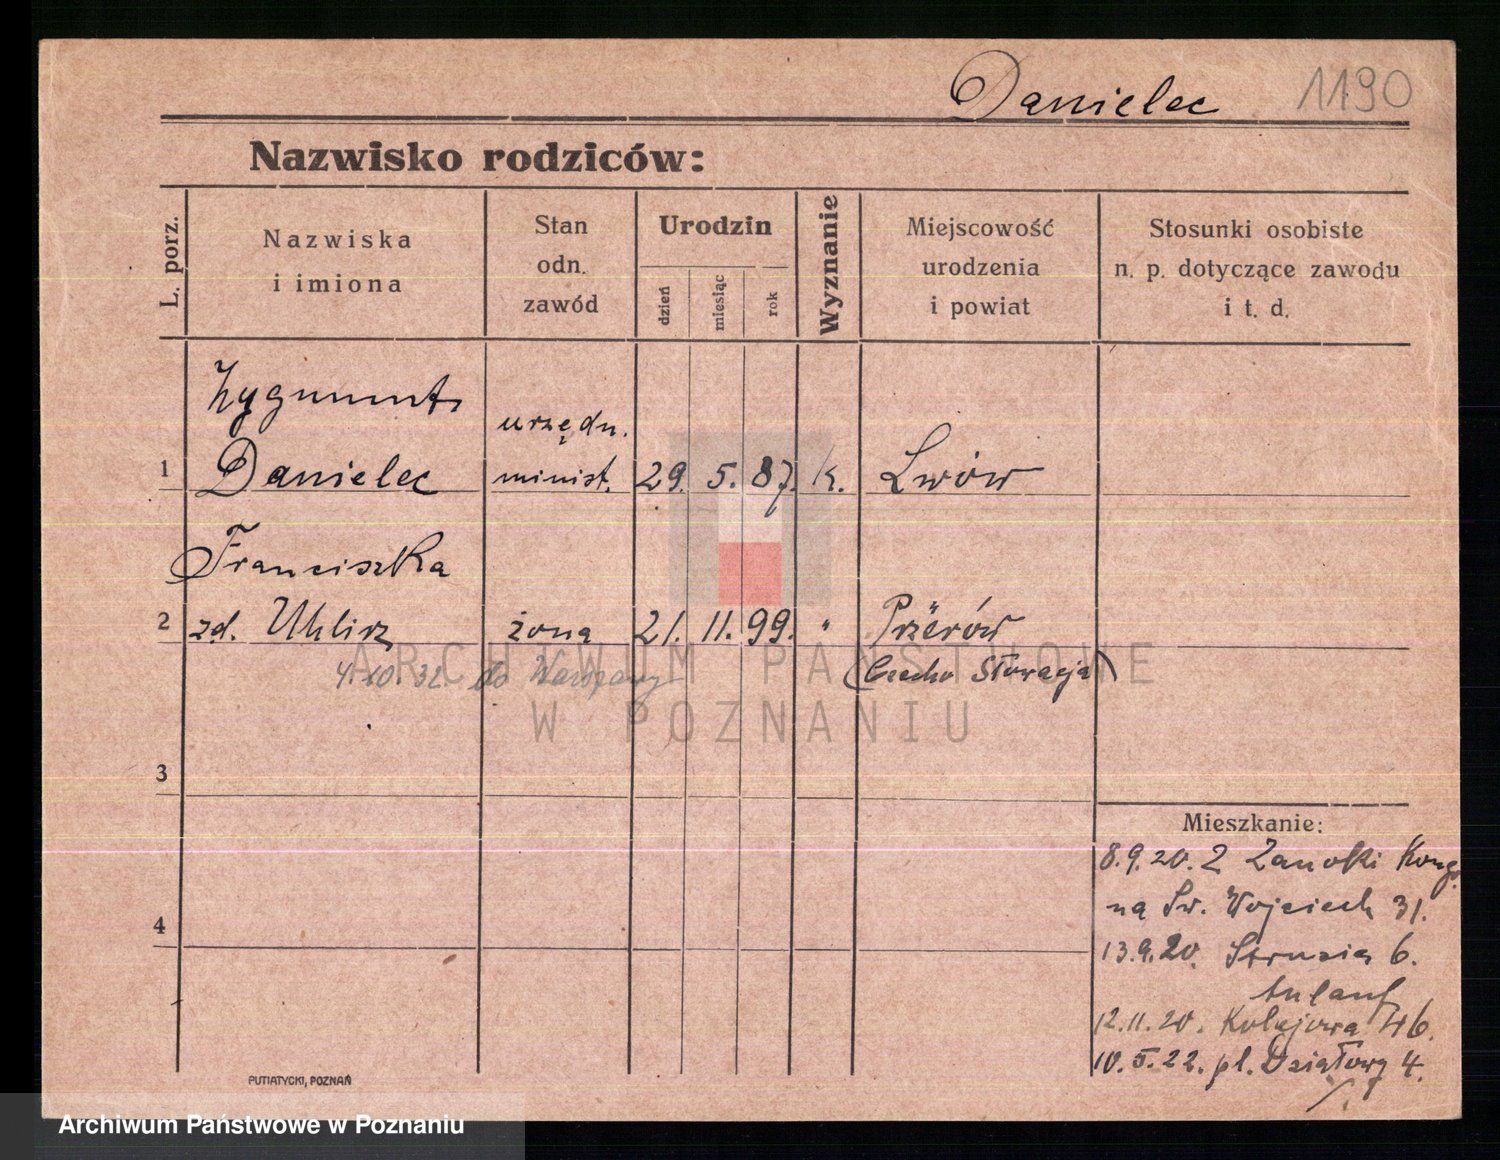 Danielec 1190
Nazwisko rodziców:
L. porz.
Nazwiska
i imiona
Stan
odn.
zawód
Urodzin
dzień
miesiąc
rok
Wyznanie
Miejscowość
urodzenia
i powiat
Stosunki osobiste
n. p. dotyczące zawodu
i t. d.
Zygmunt
Danielec
urzędn.
1 minist. 29. 5. 87. k. Lwów
Franciszka
2 zd. Uhlirz żona 21. 11. 99. " Przërów
(Czecho Słowacja)
4.10.32 do Warszawy
ARCHIWUM PAŃSTWOWE
W POZNANIU
3
4
Mieszkanie:
8.9.20. Z Kong.
na Św. Wojciech 31.
13.9.20. Strusia 6.
12.11.20. Kolejowa 46.
10.5.22. pl. Działowy 4.
PUTIATYCKI, POZNAŃ
Archiwum Państwowe w Poznaniu